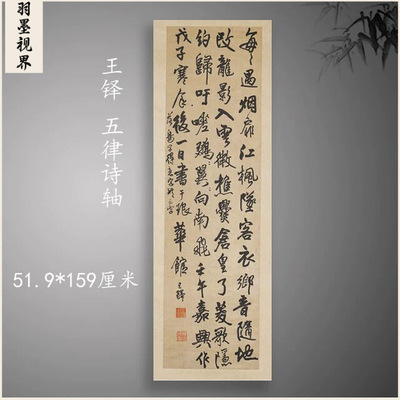 羽墨视界
王铎 五律诗轴
51.9*159厘米
每遇烟扉江楓墜客衣鄉音隨地
改龍影入雲微樵爨倉皇了菱歌隱
約歸吁嗟翼向南飛壬午嘉興作
戊子寒食後一日書于琅華館王鐸